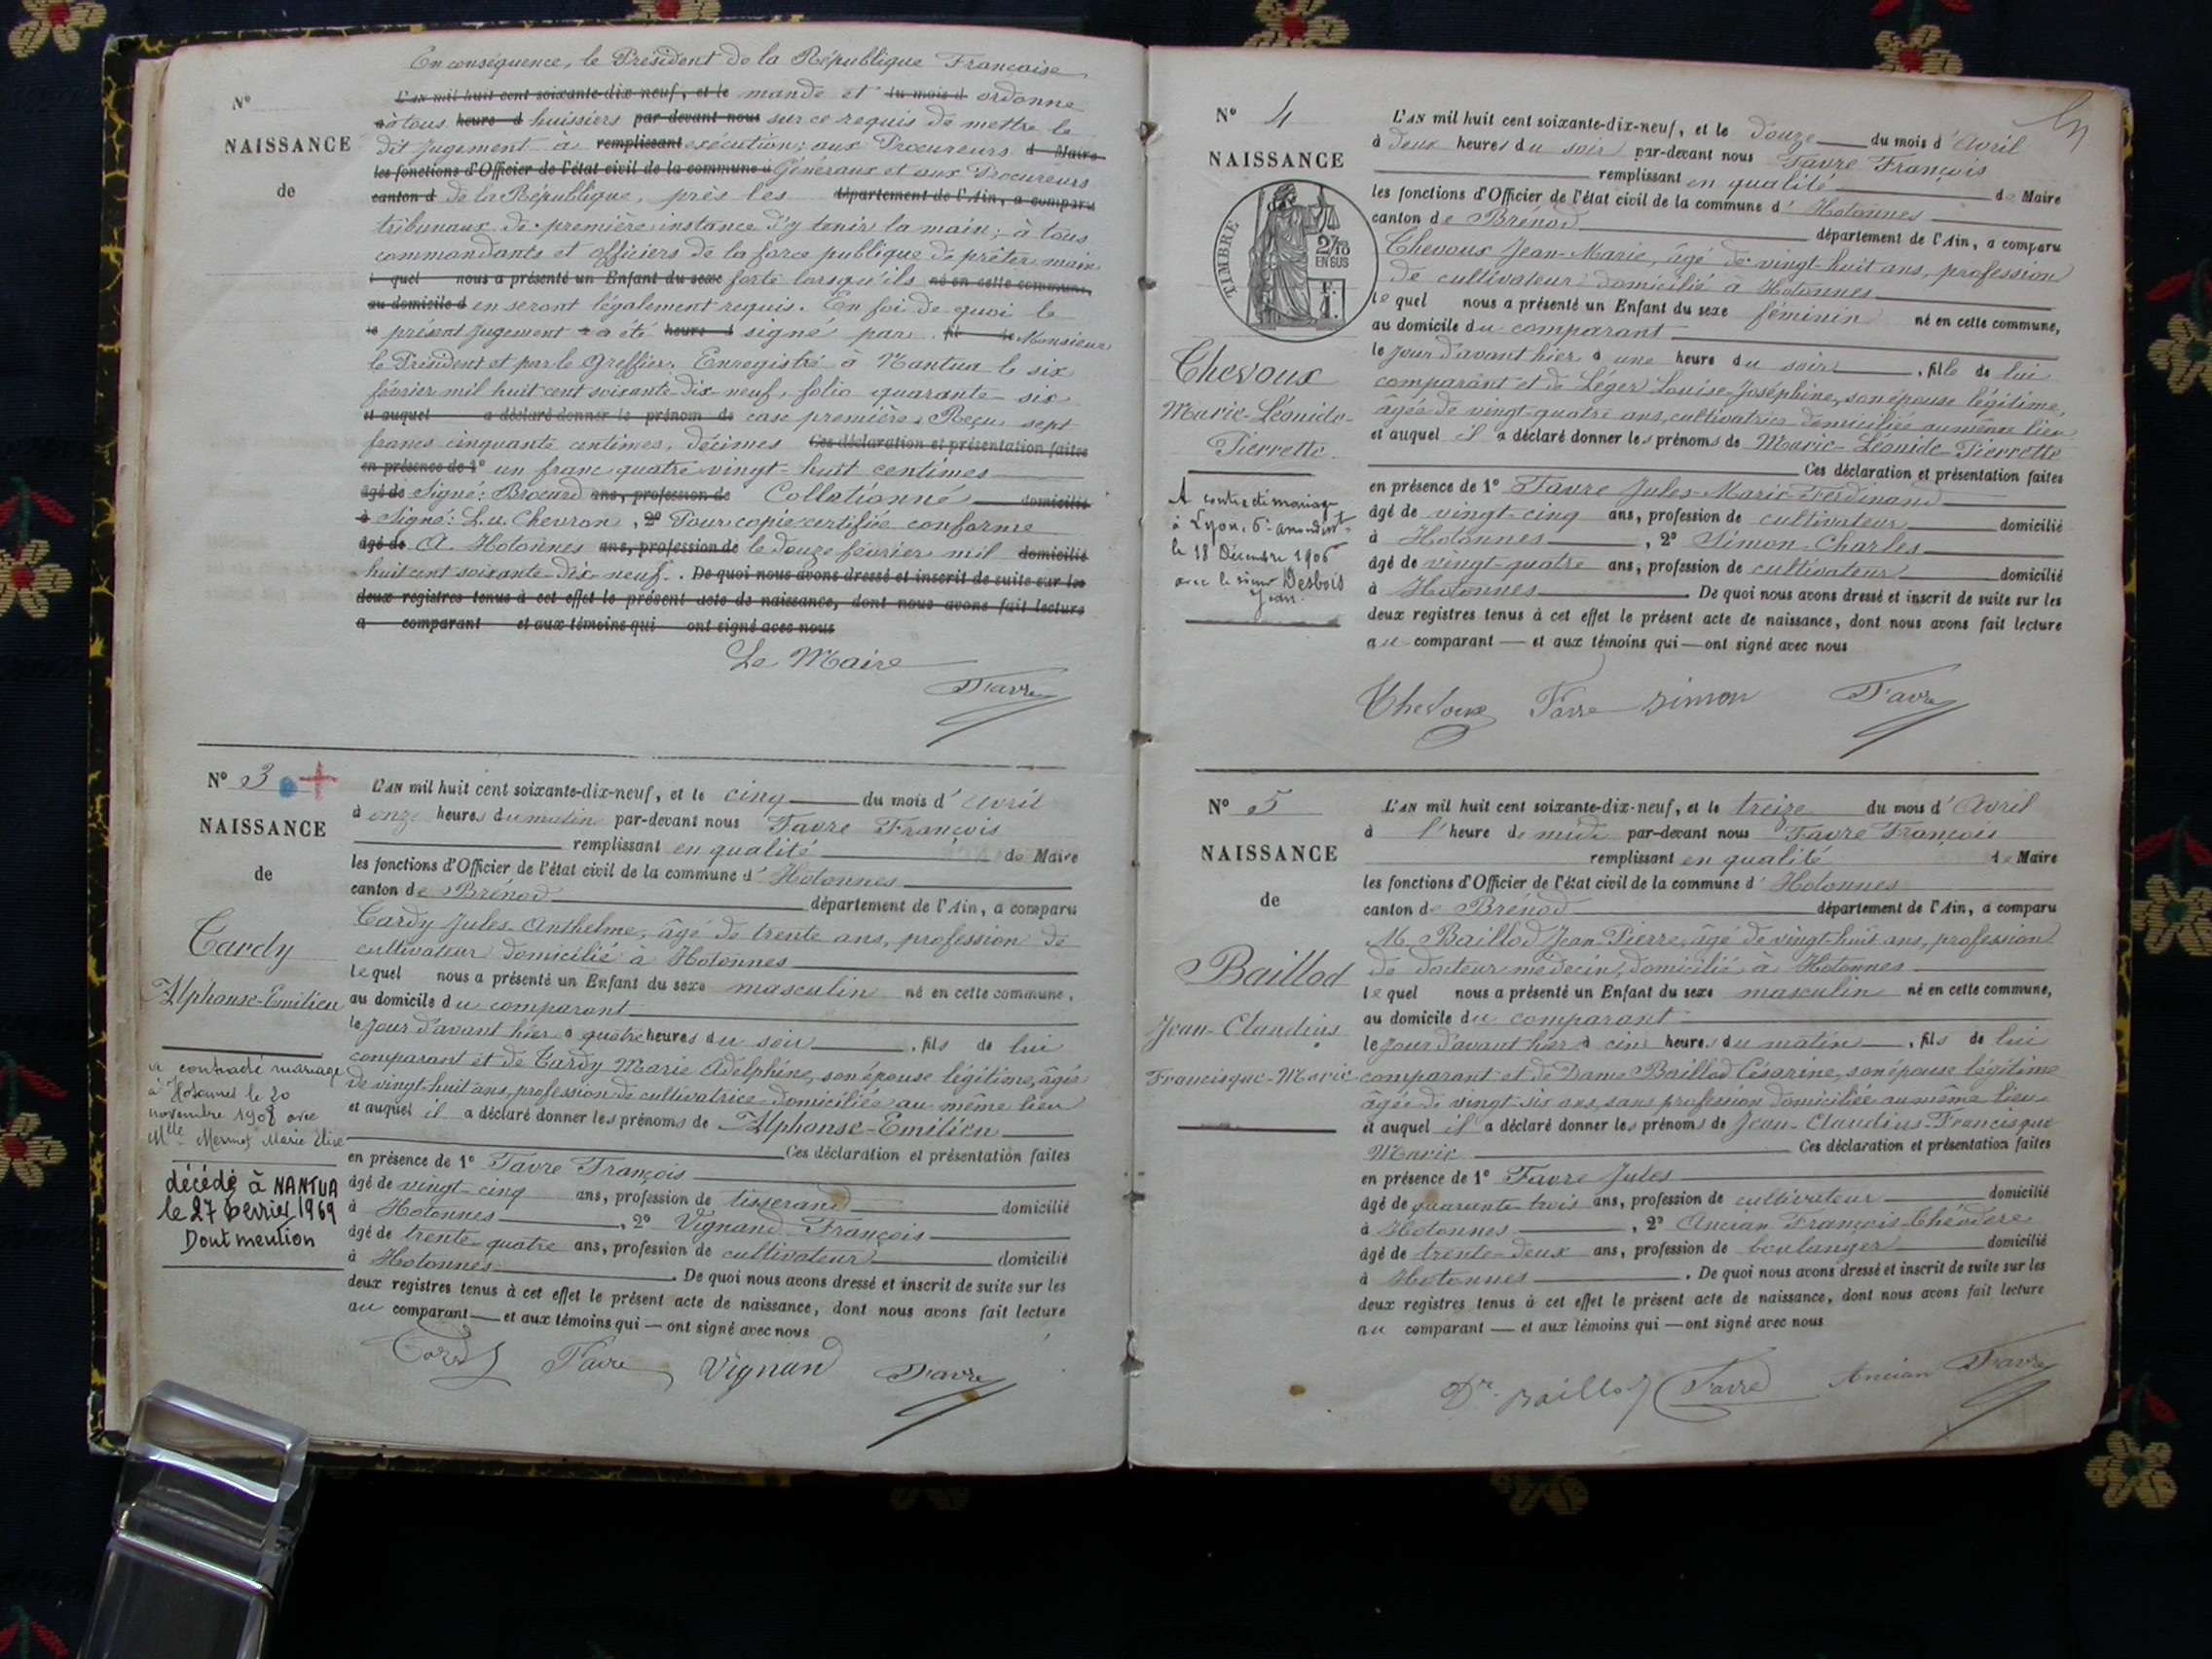 En conséquence, le Président de la République Française
L'AN mil huit cent soixante-dix-neuf, et le mande et du mois d ordonne
à à tous heure d huissiers par-devant nous sur ce requis de mettre le
dit jugement à remplissant exécution; aux Procureurs d Maire
les fonctions d'Officier de l'état civil de la commune d Généraux et aux Procureurs
canton d de la République, près les département de l'Ain, a comparu
tribunaux de première instance d'y tenir la main; à tous
commandants et officiers de la force publique de prêter main
l quel nous a présenté un Enfant du sexe forte lorsqu'ils né en cette commune,
au domicile d en seront légalement requis. En foi de quoi le
le présent jugement à a été heure d signé par fil de Monsieur
le Président et par le Greffier. Enregistré à Nantua le six
février mil huit cent soixante-dix-neuf, folio quarante-six
et auquel a déclaré donner le prénom de case première. Reçu sept
francs cinquante centimes, décimes Ces déclaration et présentation faites
en présence de 1° un franc quatre-vingt-huit centimes
âgé de Signé: Brocard ans, profession de Collationné domicilié
à Signé: L.u. Chevron, 2° Pour copie certifiée conforme
âgé de A Hotonnes ans, profession de le douze février mil domicilié
huit cent soixante-dix-neuf. De quoi nous avons dressé et inscrit de suite sur les
deux registres tenus à cet effet le présent acte de naissance, dont nous avons fait lecture
a comparant et aux témoins qui ont signé avec nous
Le Maire
Favre
N°
NAISSANCE
de
N° 3
NAISSANCE
de
Cardy
Alphonse-Emilien
a contracté mariage
à Hotonnes le 20
novembre 1908 avec
Mlle Mermet Marie Elise
décédé à NANTUA
le 27 Février 1969
Dont mention
L'AN mil huit cent soixante-dix-neuf, et le cinq du mois d'Avril
à onze heures du matin par-devant nous Favre François
remplissant en qualité de Maire
les fonctions d'Officier de l'état civil de la commune d'Hotonnes
canton de Brénod département de l'Ain, a comparu
Cardy Jules-Anthelme, âgé de trente ans, profession de
cultivateur domicilié à Hotonnes
lequel nous a présenté un Enfant du sexe masculin né en cette commune,
au domicile du comparant
le jour d'avant hier à quatre heures du soir, fils de lui
comparant et de Cardy Marie Adelphine, son épouse légitime, âgée
de vingt-huit ans, profession de cultivatrice domiciliée au même lieu
et auquel il a déclaré donner les prénoms de Alphonse-Emilien
Ces déclaration et présentation faites
en présence de 1° Favre François
âgé de vingt-cinq ans, profession de tisserand domicilié
à Hotonnes, 2° Vignand François
âgé de trente-quatre ans, profession de cultivateur domicilié
à Hotonnes. De quoi nous avons dressé et inscrit de suite sur les
deux registres tenus à cet effet le présent acte de naissance, dont nous avons fait lecture
au comparant et aux témoins qui ont signé avec nous
Cardy Favre Vignand Favre
N° 4
NAISSANCE
TIMBRE
2/10
EN SUS
Chevoux
Marie-Léonide-
Pierrette
A contracté mariage
à Lyon, 6e arrondist
le 18 Décembre 1906
avec le sieur Desbois
Jean.
L'AN mil huit cent soixante-dix-neuf, et le douze du mois d'Avril
à deux heures du soir par-devant nous Favre François
remplissant en qualité de Maire
les fonctions d'Officier de l'état civil de la commune d'Hotonnes
canton de Brénod département de l'Ain, a comparu
Chevoux Jean-Marie, âgé de vingt-huit ans, profession
de cultivateur domicilié à Hotonnes
lequel nous a présenté un Enfant du sexe féminin né en cette commune,
au domicile du comparant
le jour d'avant hier à une heure du soir, fille de lui
comparant et de Léger Louise-Joséphine, son épouse légitime,
âgée de vingt-quatre ans, cultivatrice domiciliée au même lieu
et auquel il a déclaré donner les prénoms de Marie-Léonide-Pierrette
Ces déclaration et présentation faites
en présence de 1° Favre Jules-Marie-Ferdinand
âgé de vingt-cinq ans, profession de cultivateur domicilié
à Hotonnes, 2° Simon Charles
âgé de vingt-quatre ans, profession de cultivateur domicilié
à Hotonnes. De quoi nous avons dressé et inscrit de suite sur les
deux registres tenus à cet effet le présent acte de naissance, dont nous avons fait lecture
au comparant et aux témoins qui ont signé avec nous
Chevoux Favre Simon Favre
N° 5
NAISSANCE
de
Baillod
Jean-Claudius
Francisque-Marie
L'AN mil huit cent soixante-dix-neuf, et le treize du mois d'Avril
à l'heure de midi par-devant nous Favre François
remplissant en qualité de Maire
les fonctions d'Officier de l'état civil de la commune d'Hotonnes
canton de Brénod département de l'Ain, a comparu
M. Baillod Jean Pierre, âgé de vingt-huit ans, profession
de docteur médecin, domicilié à Hotonnes
lequel nous a présenté un Enfant du sexe masculin né en cette commune,
au domicile du comparant
le jour d'avant hier à cinq heures du matin, fils de lui
comparant et de Dame Baillod Césarine, son épouse légitime
âgée de vingt-six ans, sans profession domiciliée au même lieu
et auquel il a déclaré donner les prénoms de Jean-Claudius-Francisque
Marie Ces déclaration et présentation faites
en présence de 1° Favre Jules
âgé de quarante-trois ans, profession de cultivateur domicilié
à Hotonnes, 2° Ancian François-Théodore
âgé de trente-deux ans, profession de boulanger domicilié
à Hotonnes. De quoi nous avons dressé et inscrit de suite sur les
deux registres tenus à cet effet le présent acte de naissance, dont nous avons fait lecture
au comparant et aux témoins qui ont signé avec nous
Dr. Baillod Favre Ancian Favre